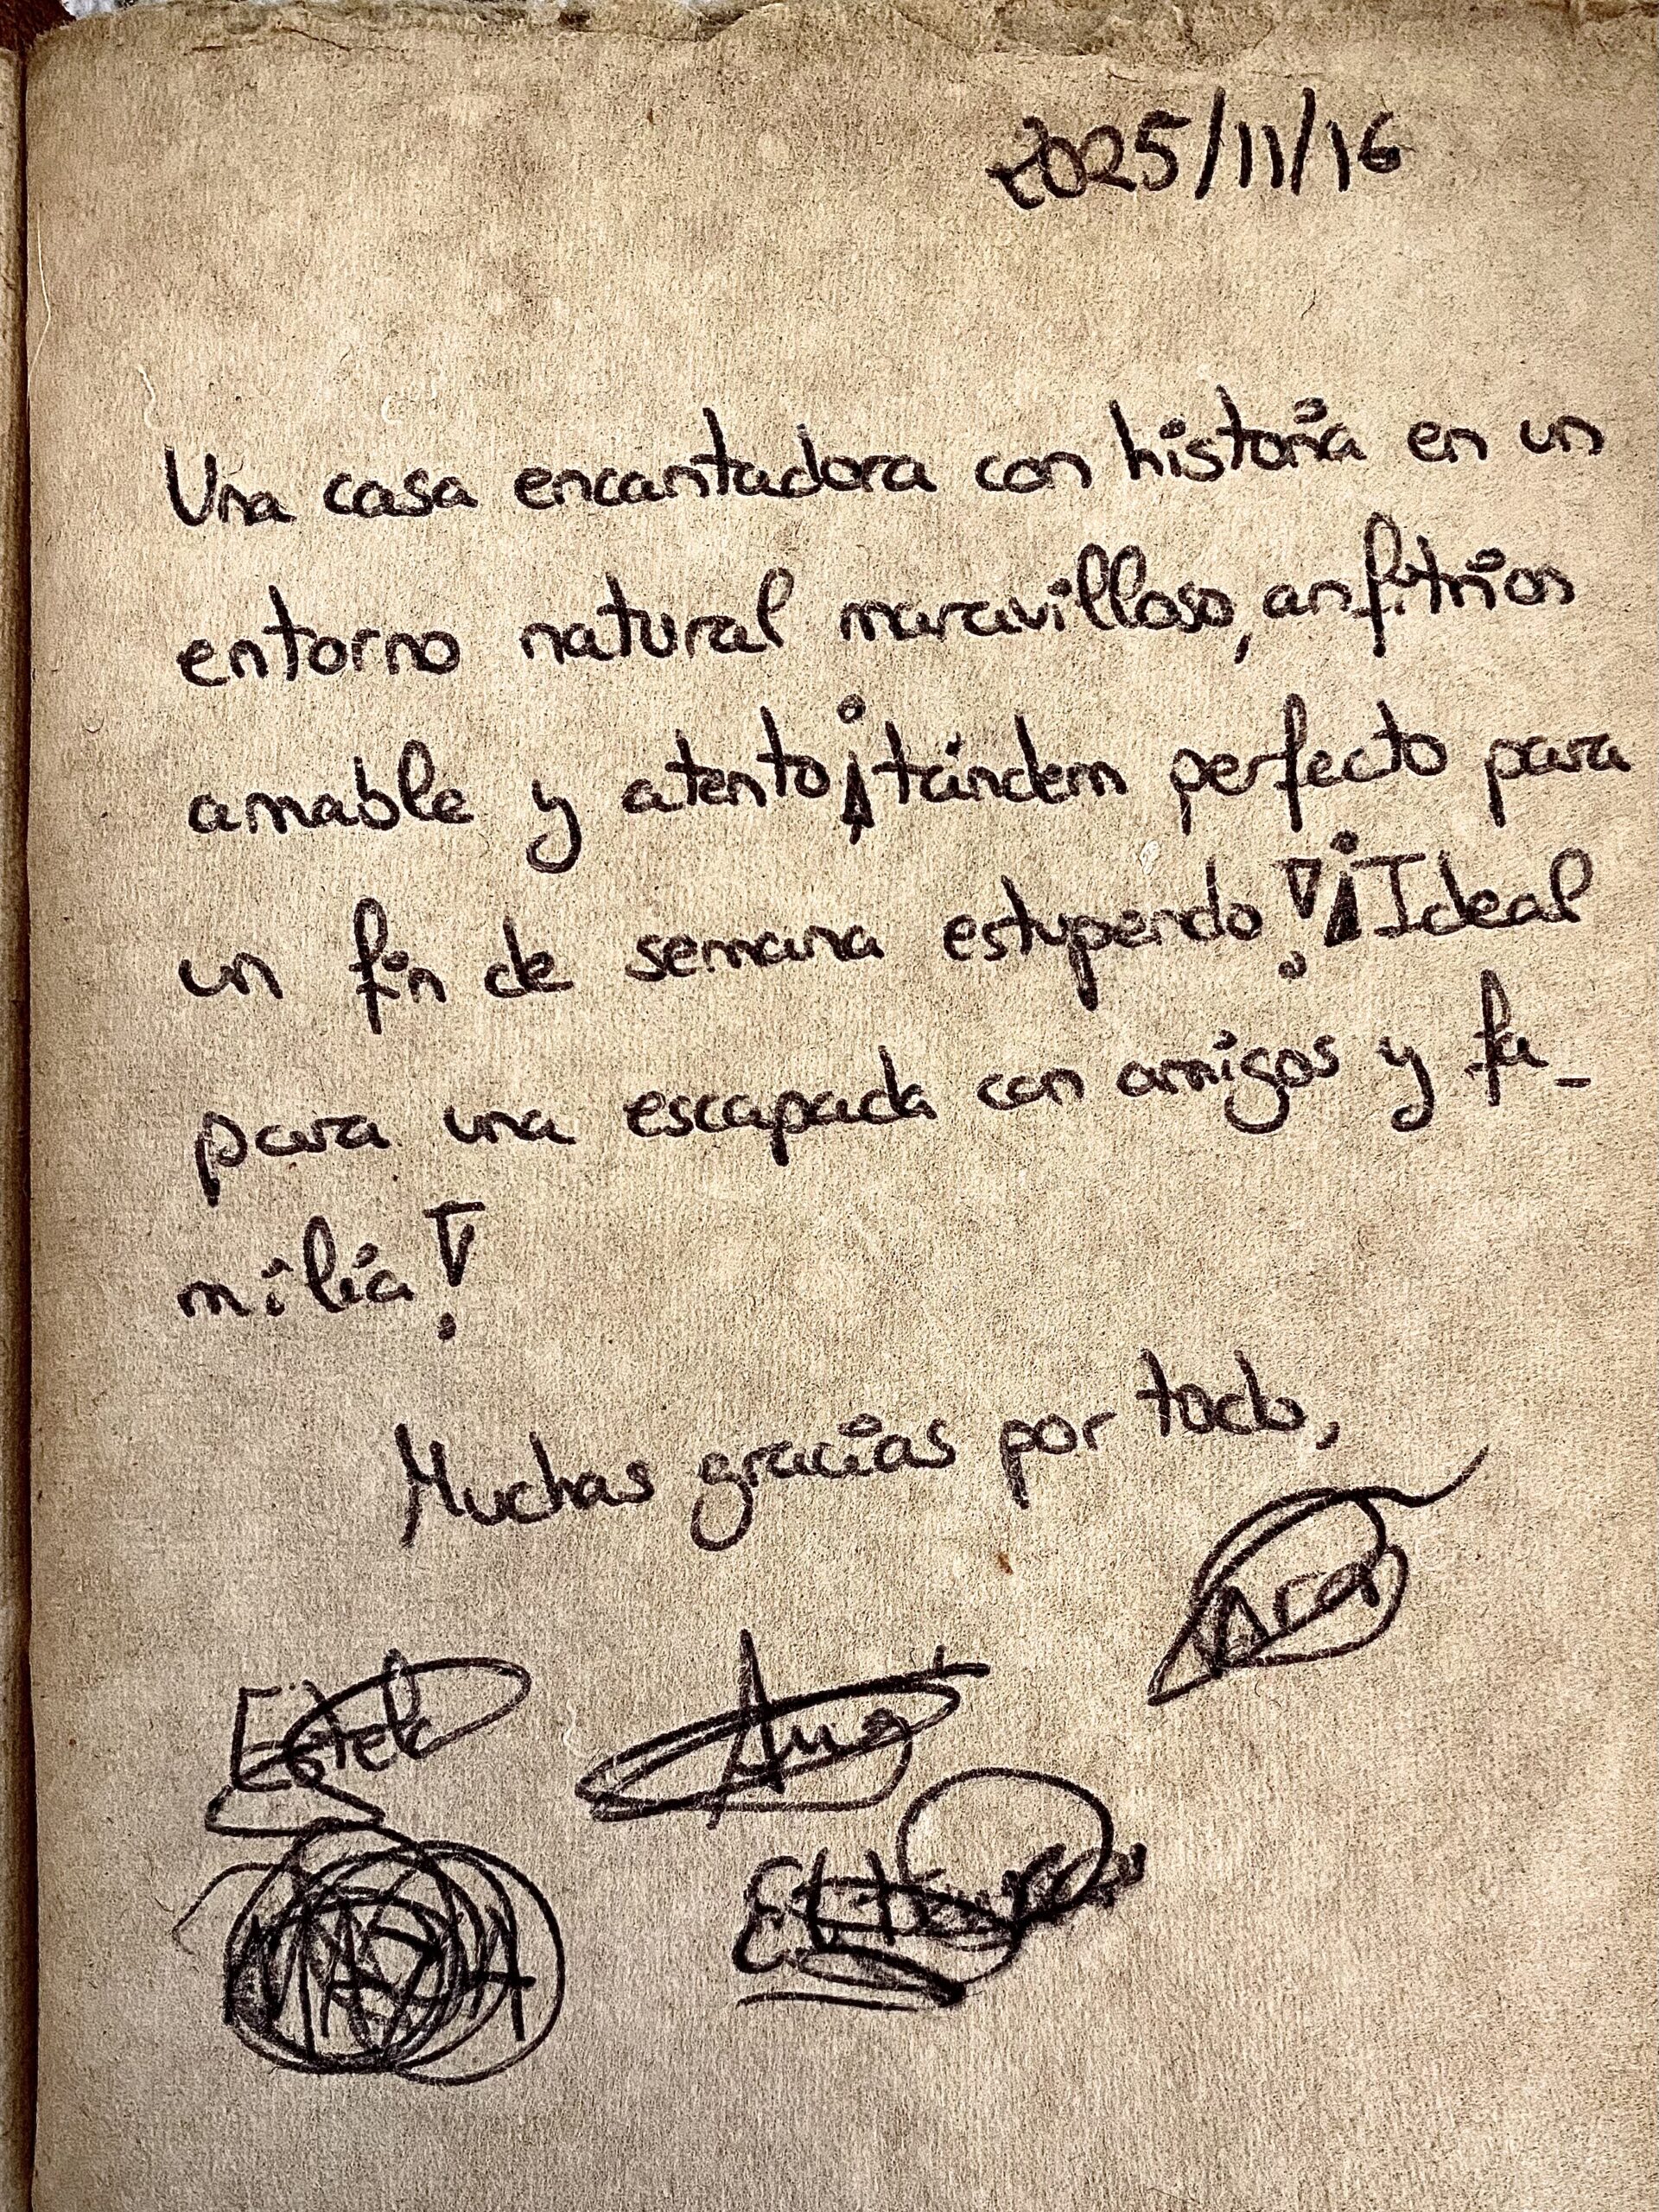 2025/11/16
Una casa encantadora con historia en un
entorno natural maravilloso, anfitrion
amable y atento ¡tándem perfecto para
un fin de semana estupendo! ¡Ideal
para una escapada con amigos y fa_
milia!
Muchas gracias por todo,
Ara
Estela